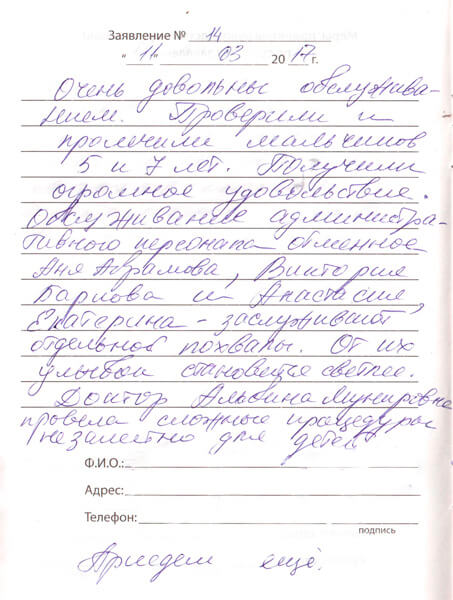 Заявление № 14
" 11 " 03 2017 г.
Очень довольны обслужива-
нием. Проверили и
пролечили мальчиков
5 и 7 лет. Получили
огромное удовольствие.
Обслуживание администра-
тивного персонала отменное
Аня Абрамова, Виктория
Баркова и Анастасия,
Екатерина - заслуживают
отдельной похвалы. От их
улыбки становится светлее.
Доктор Альбина Мунировна
провела сложные процедуры
незаметно для детей
Ф.И.О.:
Адрес:
Телефон:
подпись
Приедем ещё.